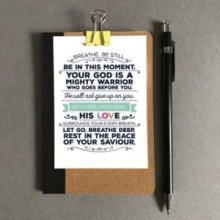 BREATHE, BE STILL,
BE IN THIS MOMENT.
YOUR GOD IS A
MIGHTY WARRIOR
WHO GOES BEFORE YOU.
He will not give up on you.
HE IS HERE, RIGHT NOW.
HIS LOVE
SURROUNDS YOUR EVERY BREATH.
LET GO, BREATHE DEEP,
REST IN THE PEACE
OF YOUR SAVIOUR.